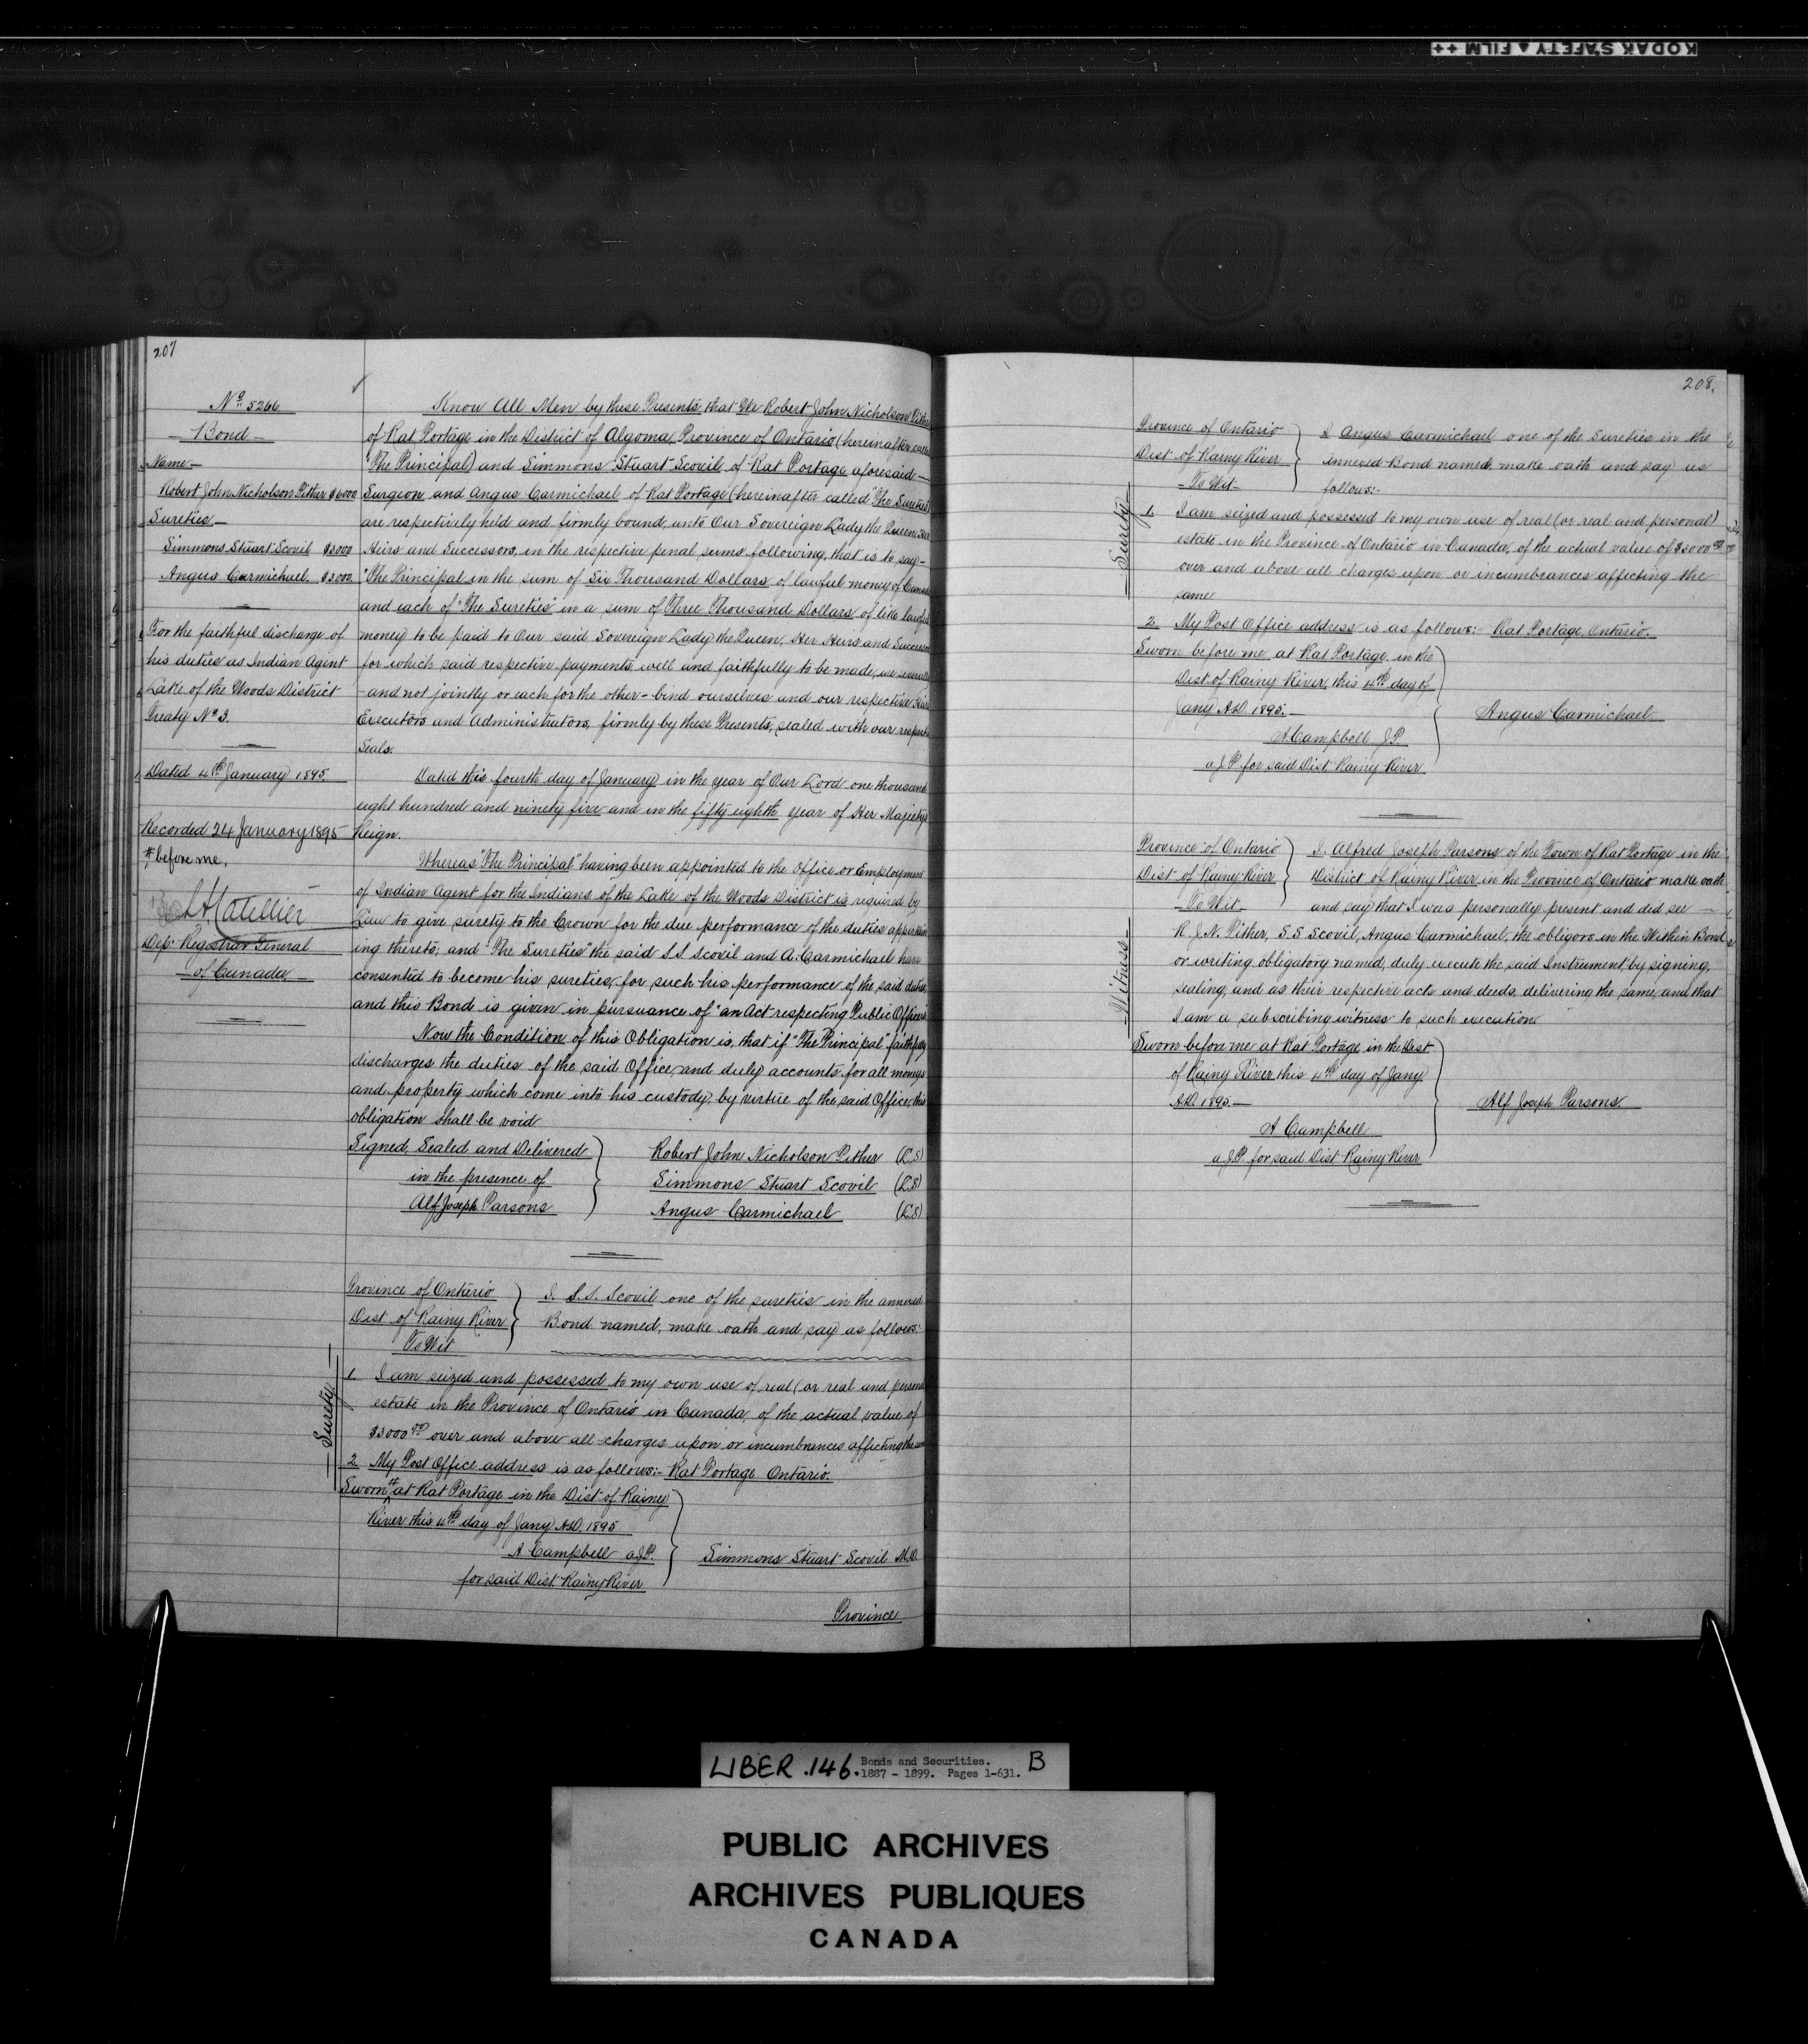 KODAK SAFETY ▲ FILM ++
207
No 5266
Bond
Name
Robert John Nicholson Pither $6000
Sureties
Simmons Stuart Scovil $3000
Angus Carmichael $3000
For the faithful discharge of
his duties as Indian Agent
Lake of the Woods District
Treaty No 3.
Dated 4th January 1895
Recorded 24 January 1895
# before me,
Dep: Registrar General
of Canada
Know All Men by these Presents, that We Robert John Nicholson Pither
of Rat Portage in the District of Algoma, Province of Ontario (hereinafter
"The Principal) and Simmons Stuart Scovil of Rat Portage aforesaid
Surgeon and Angus Carmichael of Rat Portage (hereinafter called "The Sureties"
are respectively held and firmly bound, unto Our Sovereign Lady the Queen, Her
Heirs and Successors, in the respective penal sums following, that is to say-
"The Principal in the sum of Six Thousand Dollars of lawful money of Canada
and each of "The Sureties" in a sum of Three Thousand Dollars of like lawful
money to be paid to Our said Sovereign Lady the Queen, Her Heirs and Successors
for which said respective payments well and faithfully to be made, we severally
- and not jointly or each for the other - bind ourselves and our respective Heirs
Executors and Administrators, firmly by these Presents, sealed with our respective
Seals.
Dated this fourth day of January in the year of Our Lord one thousand
eight hundred and ninety five and in the fifty eighth year of Her Majesty's
Reign.
Whereas "The Principal" having been appointed to the Office or Employment
of Indian Agent for the Indians of the Lake of the Woods District is required by
Law to give surety to the Crown for the due performance of the duties appertain
ing thereto, and "The Sureties" the said S S Scovil and A. Carmichael have
consented to become his sureties, for such his performance of the said duties,
and this Bond is given in pursuance of "an Act respecting Public Officers
Now the Condition of this Obligation is, that if "The Principal" faithfully
discharges the duties of the said Office and duly accounts for all moneys
and property which come into his custody, by virtue of the said Office, this
obligation shall be void
Signed, Sealed and Delivered
in the presence of
Alf Joseph Parsons
Robert John Nicholson Pither (L.S)
Simmons Stuart Scovil (L.S)
Angus Carmichael (L.S)
Province of Ontario
Dist of Rainy River
To Wit
I S.S. Scovil one of the sureties in the annexed
Bond named, make oath and say as follows:-
Surety
1. I am seized and possessed to my own use of real (or real and personal
estate in the Province of Ontario in Canada, of the actual value of
$3000 00 over and above all charges upon or incumbrances affecting the same
2. My Post Office address is as follows:- Rat Portage Ontario.
Sworn # at Rat Portage in the Dist of Rainy
River this 4th day of Jany A.D. 1895
A Campbell a J.P.
for said Dist. Rainy River
Simmons Stuart Scovil M.D.
Province
208.
Province of Ontario
Dist of Rainy River
To Wit
I Angus Carmichael one of the Sureties in the
annexed Bond named, make oath and say as
follows:-
Surety
1. I am seized and possessed to my own use of real (or real and personal)
estate in the Province of Ontario in Canada, of the actual value of $3000 00
over and above all charges upon or incumbrances affecting the
same
2. My Post Office address is as follows:- Rat Portage, Ontario.
Sworn before me at Rat Portage in the
Dist. of Rainy River, this 4th day of
Jany A.D. 1895.
A. Campbell J.P.
a J.P. for said Dist. Rainy River
Angus Carmichael
Province of Ontario
Dist of Rainy River
To Wit
I. Alfred Joseph Parsons of the Town of Rat Portage in the
District of Rainy River in the Province of Ontario make oath
and say that I was personally present and did see
Witness
R. J. N. Pither, S. S Scovil, Angus Carmichael, the obligors in the Within Bond
or writing obligatory named, duly execute the said Instrument, by signing,
sealing, and as their respective acts and deeds, delivering the same, and that
I am a subscribing witness to such execution
Sworn before me at Rat Portage in the Dist
of Rainy River this 4th day of Jany
A.D. 1895.
A Campbell
a J.P. for said Dist. Rainy River
Alf Joseph Parsons.
LIBER .146. Bonds and Securities. B
1887 - 1899. Pages 1-631.
PUBLIC ARCHIVES
ARCHIVES PUBLIQUES
CANADA